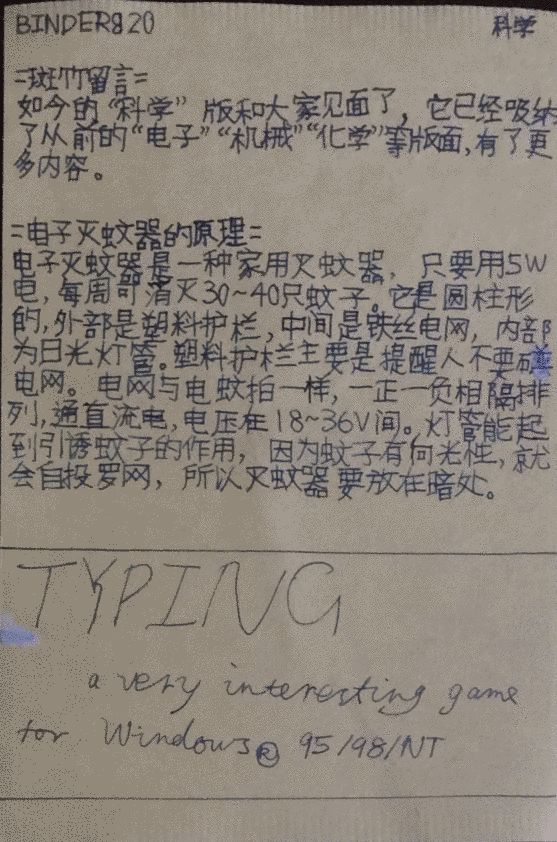 BINDER820
科学
=斑竹留言=
如今的“科学”版和大家见面了，它已经吸纳
了从前的“电子”“机械”“化学”等版面，有了更
多内容。
=电子灭蚊器的原理=
电子灭蚊器是一种家用灭蚊器，只要用5W
电，每周可消灭30~40只蚊子。它是圆柱形
的，外部是塑料护栏，中间是铁丝电网，内部
为日光灯管。塑料护栏主要是提醒人不要碰
电网。电网与电蚊拍一样，一正一负相隔排
列，通直流电，电压在18~36V间。灯管能起
到引诱蚊子的作用，因为蚊子有向光性，就
会自投罗网，所以灭蚊器要放在暗处。
TYPING
a very interesting game
for Windows® 95/98/NT